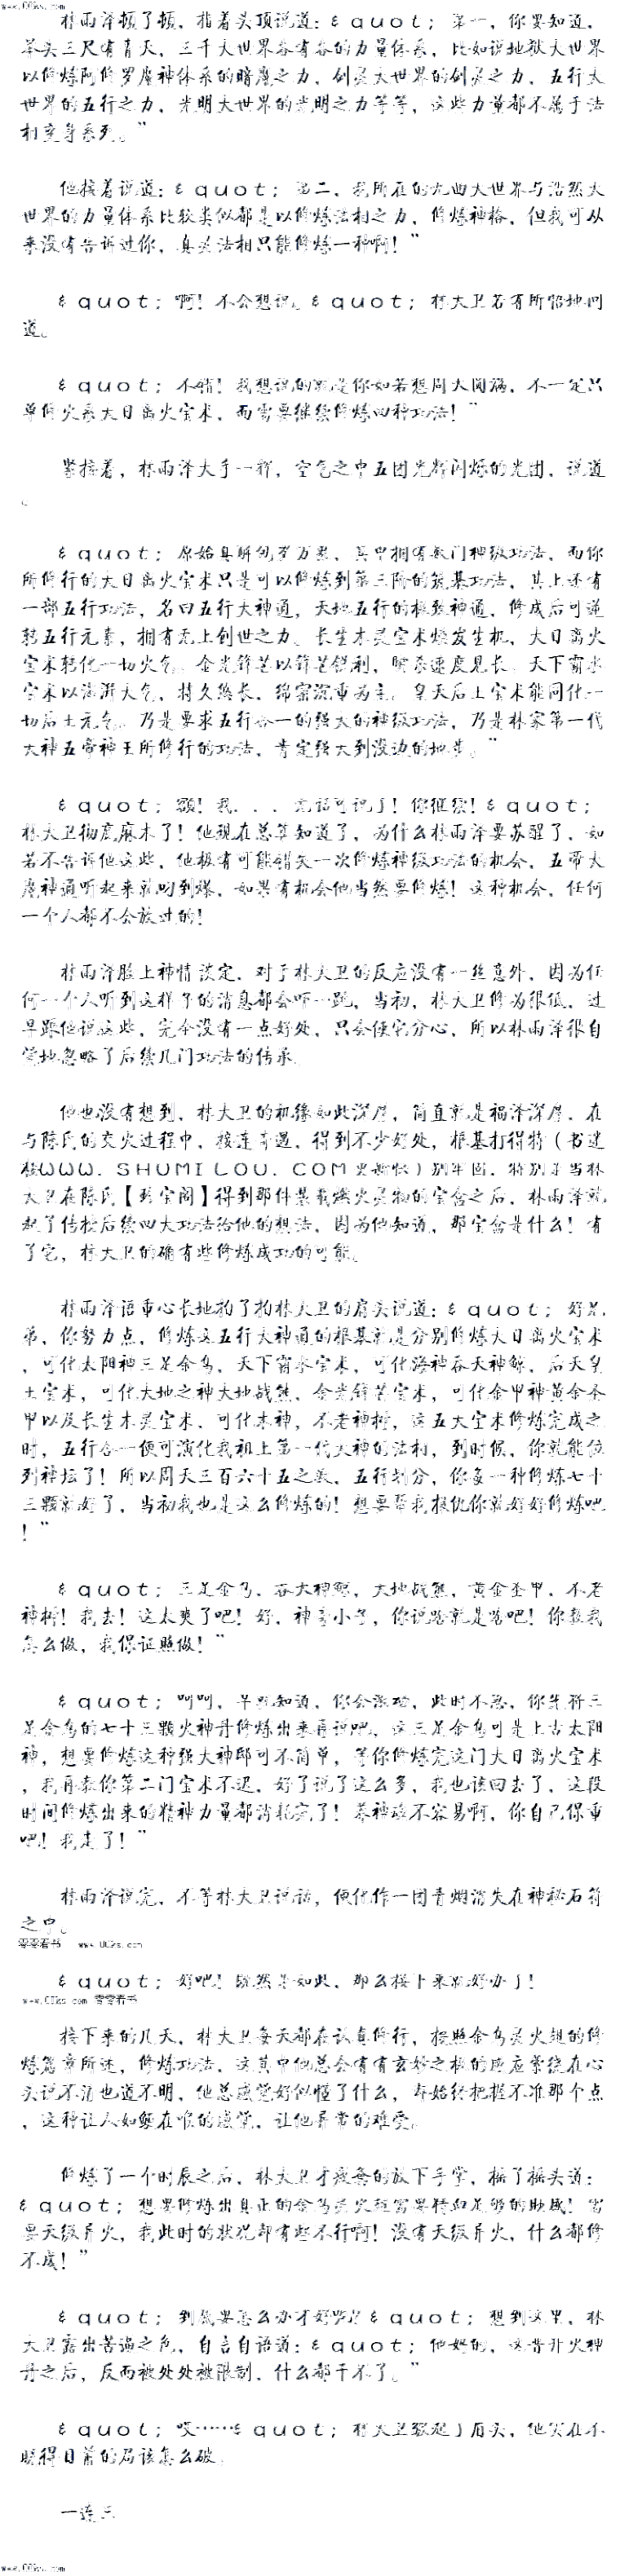 www.00ks.com
林雨泽顿了顿，指着头顶说道：&quot;第一，你要知道，
举头三尺有青天，三千大世界各有各的力量体系，比如说地狱大世界
以修炼阿修罗魔神体系的暗魔之力，创灵大世界的创灵之力，五行大
世界的五行之力，光明大世界的光明之力等等，这些力量都不属于法
相变身系列。"
他接着说道：&quot;第二，我所在的九曲大世界与浩然大
世界的力量体系比较类似都是以修炼法相之力，修炼神格，但我可从
来没有告诉过你，真灵法相只能修炼一种啊！"
&quot;啊！不会想说。&quot;林大卫若有所思地问
道。
&quot;不错！我想说的就是你如若想周天圆满，不一定只
单修火系大日离火宝术，而需要继续修炼四种功法！"
紧接着，林雨泽大手一挥，空气之中五团光辉闪烁的光团，说道
。
&quot;原始真解包罗万象，其中拥有数门神级功法，而你
所修行的大日离火宝术只是可以修炼到第三阶的筑基功法，其上还有
一部五行功法，名曰五行大神通，天地五行的极致神通，修成后可逆
转五行元素，拥有无上创世之力。长生木灵宝术焕发生机，大日离火
宝术转化一切火气，金光锋芒以锋芒锐利，瞬杀速度见长，天下霸水
宝术以澎湃大气，持久悠长，绵密沉重为主。皇天后土宝术能同化一
切后土元气。乃是要求五行合一的强大的神级功法，乃是林家第一代
大神五帝神王所修行的功法，肯定强大到没边的地步。"
&quot;额！我...无话可说了！你继续！&quot;
林大卫彻底麻木了！他现在总算知道了，为什么林雨泽要苏醒了，如
若不告诉他这些，他极有可能错失一次修炼神级功法的机会，五帝大
魔神通听起来就叼到爆，如果有机会他当然要修炼！这种机会，任何
一个人都不会放过的！
林雨泽脸上神情淡定，对于林大卫的反应没有一丝意外，因为任
何一个人听到这样子的消息都会吓一跳，当初，林大卫修为很低，过
早跟他说这些，完全没有一点好处，只会使它分心，所以林雨泽很自
觉地忽略了后续几门功法的传承。
他也没有想到，林大卫的机缘如此深厚，简直就是福泽深厚，在
与陈氏的交火过程中，接连奇遇，得到不少好处，根基打得特（书迷
楼WWW.SHUMILOU.COM更新快）别牢固，特别是当林
大卫在陈氏【珍宝阁】得到那件装载燃火灵物的宝盒之后，林雨泽就
起了传授后续四大功法给他的想法，因为他知道，那宝盒是什么！有
了它，林大卫的确有些修炼成功的可能。
林雨泽语重心长地拍了拍林大卫的肩头说道：&quot;好兄
弟，你努力点，修炼这五行大神通的根基就是分别修炼大日离火宝术
，可化太阳神三足金乌，天下霸水宝术，可化海神吞天神鲸，后天皇
土宝术，可化大地之神大地战熊，金光锋芒宝术，可化金甲神黄金圣
甲以及长生木灵宝术，可化木神，不老神树，这五大宝术修炼完成之
时，五行合一便可演化我祖上第一代大神的法相，到时候，你就能位
列神坛了！所以周天三百六十五之数，五行划分，你每一种修炼七十
三颗就好了，当初我也是这么修炼的！想要帮我报仇你就好好修炼吧
！"
&quot;三足金乌，吞天神鲸，大地战熊，黄金圣甲，不老
神树！我去！这太爽了吧！好，神毫小子，你说啥就是啥吧！你教我
怎么做，我保证照做！"
&quot;呵呵，早就知道，你会激动，此时不急，你先将三
足金乌的七十三颗火神丹修炼出来再说吧，这三足金乌可是上古太阳
神，想要修炼这种强大神邸可不简单，等你修炼完这门大日离火宝术
，我再教你第二门宝术不迟，好了说了这么多，我也该回去了，这段
时间修炼出来的精神力量都消耗完了！养神魂不容易啊，你自己保重
吧！我走了！"
林雨泽说完，不等林大卫说话，便化作一团青烟消失在神秘石符
之中。
零零看书 www.00ks.com
&quot;好吧！既然是如此，那么接下来就好办了！
www.00ks.com 零零看书
接下来的几天，林大卫每天都在认真修行，按照金乌灵火翅的修
炼篇章所述，修炼功法，这其中他总会有有玄妙之极的感应萦绕在心
头说不清也道不明，他总感觉好似懂了什么，却始终把握不准那个点
，这种让人如鲠在喉的感觉，让他异常的难受。
修炼了一个时辰之后，林大卫才疲惫的放下手掌，摇了摇头道：
&quot;想要修炼出真正的金乌灵火翅需要精血足够的融感！需
要天级异火，我此时的状况却有些不行啊！没有天级异火，什么都修
不成！"
&quot;到底要怎么办才好呢？&quot;想到这里，林
大卫露出苦逼之色，自言自语道：&quot;他奶的，这晋升火神
丹之后，反而被处处被限制，什么都干不了。"
&quot;哎……&quot;林大卫皱起了眉头，他实在不
晓得目前的局该怎么破。
一连三
www.00ks.com